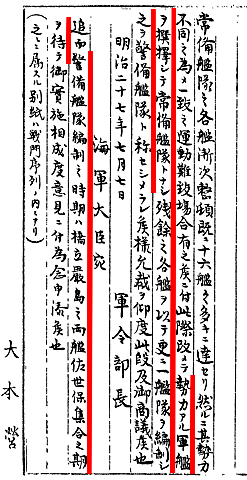 常備艦隊ミ各艦漸次整頓既ニ十六艦ノ多キニ達セリ然ルニ其勢力
不同ニ為メ一致ノ運動難致場合有之矣ニ付此際改メテ勢力アル軍艦
ヲ撰擇シテ常備艦隊トナシ殘餘ミ各艦ヲ以テ更ニ一艦隊ヲ編制シ
之ヲ警備艦隊ト称セシメラレ矣様允裁ヲ仰度此段及御商議矣也
明治二十七年七月七日
軍令部長
海軍大臣宛
追而警備艦隊編制ミ時期ハ橋立嚴島ミ両艦佐世保集合ミ期
ヲ待テ御實施相成度意見ニ付為念申添矣也
(之ニ属スル別紙ハ戰鬥序列ノ内ニアリ)
大本營